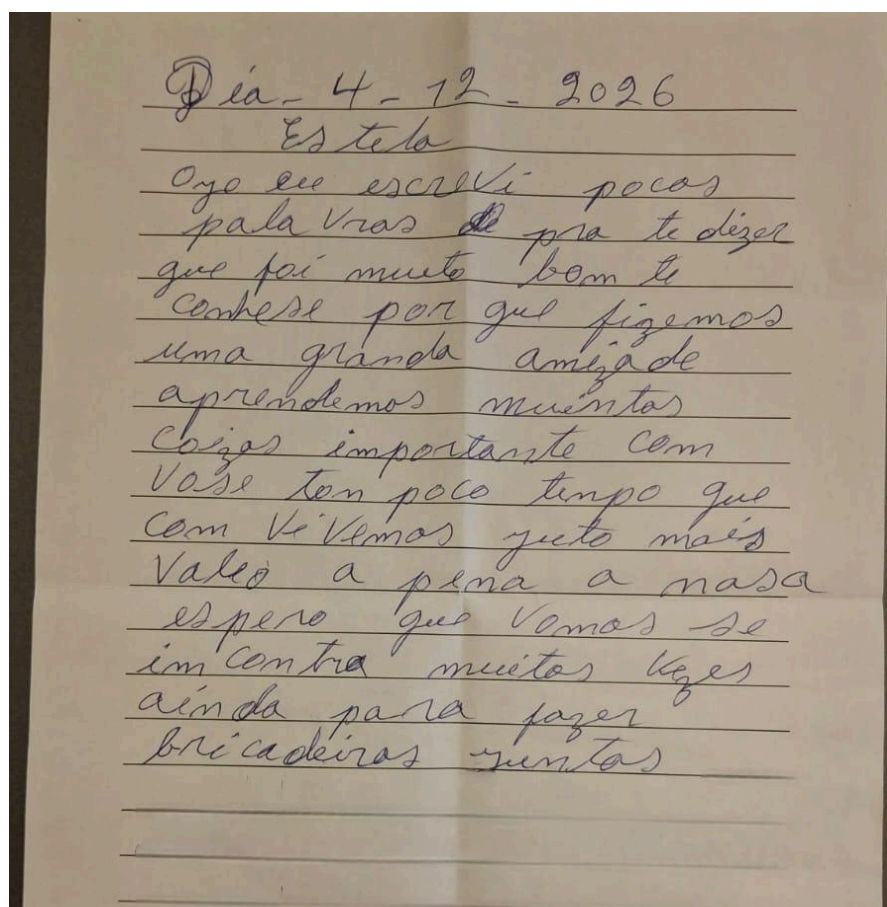 Dia - 4 - 12 - 2026
Estela
Oyo eu escrevi pocas
palavras pra te dizer
que foi mueto bom te
conhese por que fizemos
uma granda amizade
aprendemos muintas
coizas importante com
Vose ton poco tenpo que
com ViVemos yuto mais
Valeo a pena a nasa
espero que Vamos se
imcontra muitas Vezes
ainda para fazer
bricadeiras yuntas